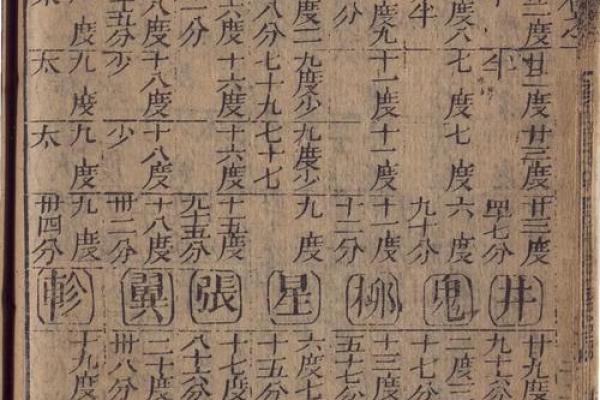 一度
度八
半
度九
度二
八分
度
一分
八度
十五分
度
太
廿一度
半
七度
十一度
九度少
七十九
十六度
十八度
少
九度
太
廿三度
七度
十一度
九度少
七十七
十六度
十八度
少
九度
太
廿三度
四七分
六度
九十分
十一度
十二分
九度
十五度
九十五分
十八度
卅二分
九度
卅四分
井
鬼
柳
星
張
翼
軫
廿九度
九十六分
二度三
十七分
十三度
五十七分
六度七
十五分
十七度
八十六分
二十度
卅八分
十九度